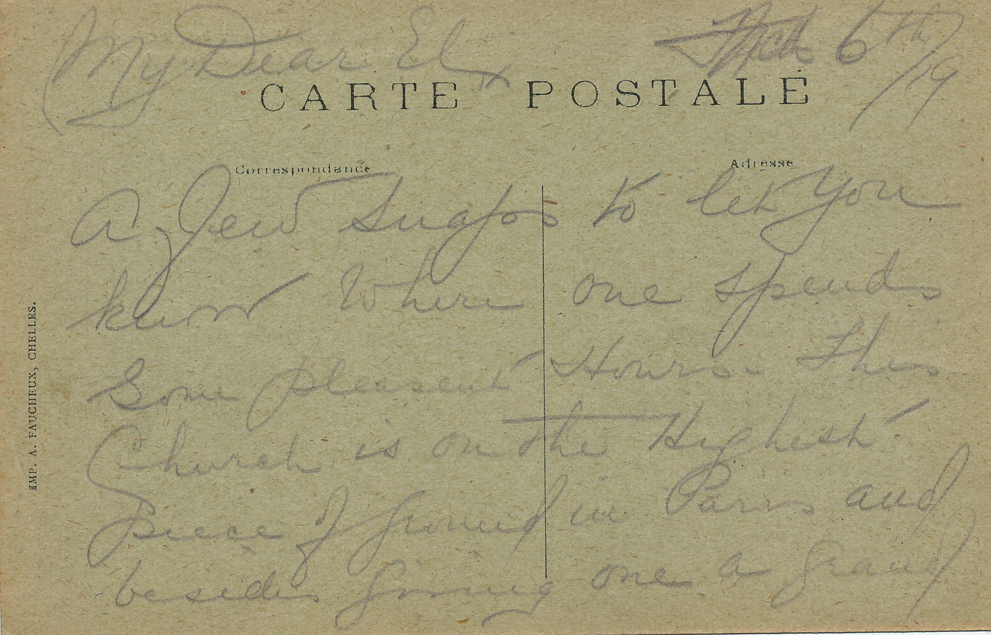 My Dear El Mch 6th/19
CARTE POSTALE
Correspondance Adresse
A few snaps to let you
know where one spends
Some pleasent Hours. This
Church is on the Highest
piece of ground in Paris and
besides giving one a grand
IMP. A. FAUCHEUX, CHELLES.